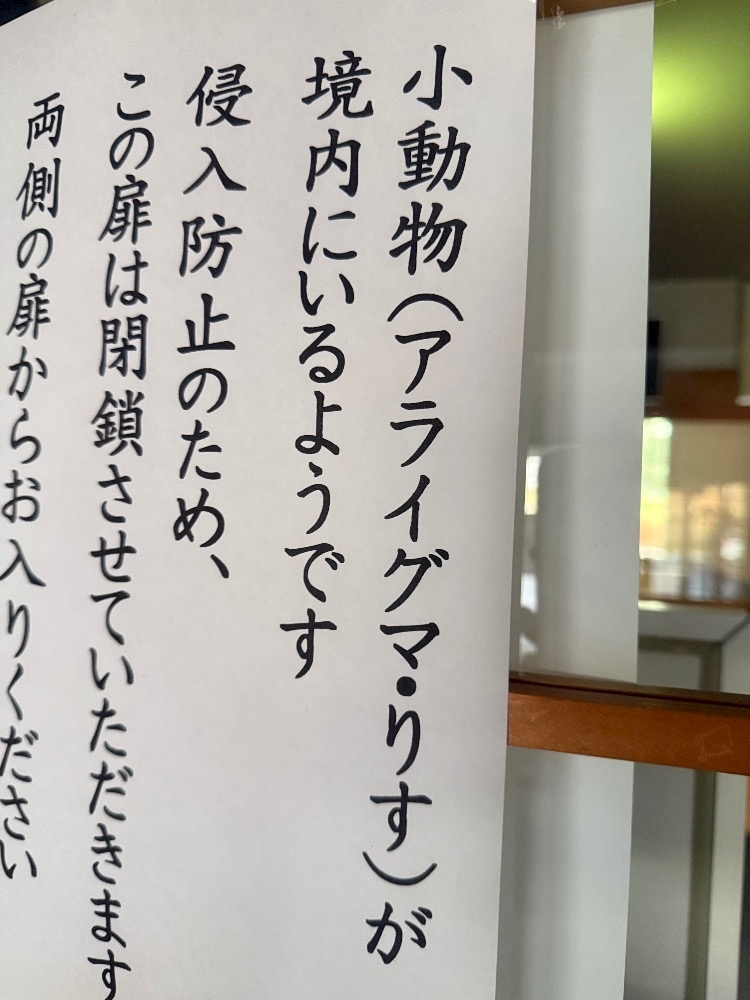 小動物(アライグマ・りす)が
境内にいるようです
侵入防止のため、
この扉は閉鎖させていただきます
両側の扉からお入りください